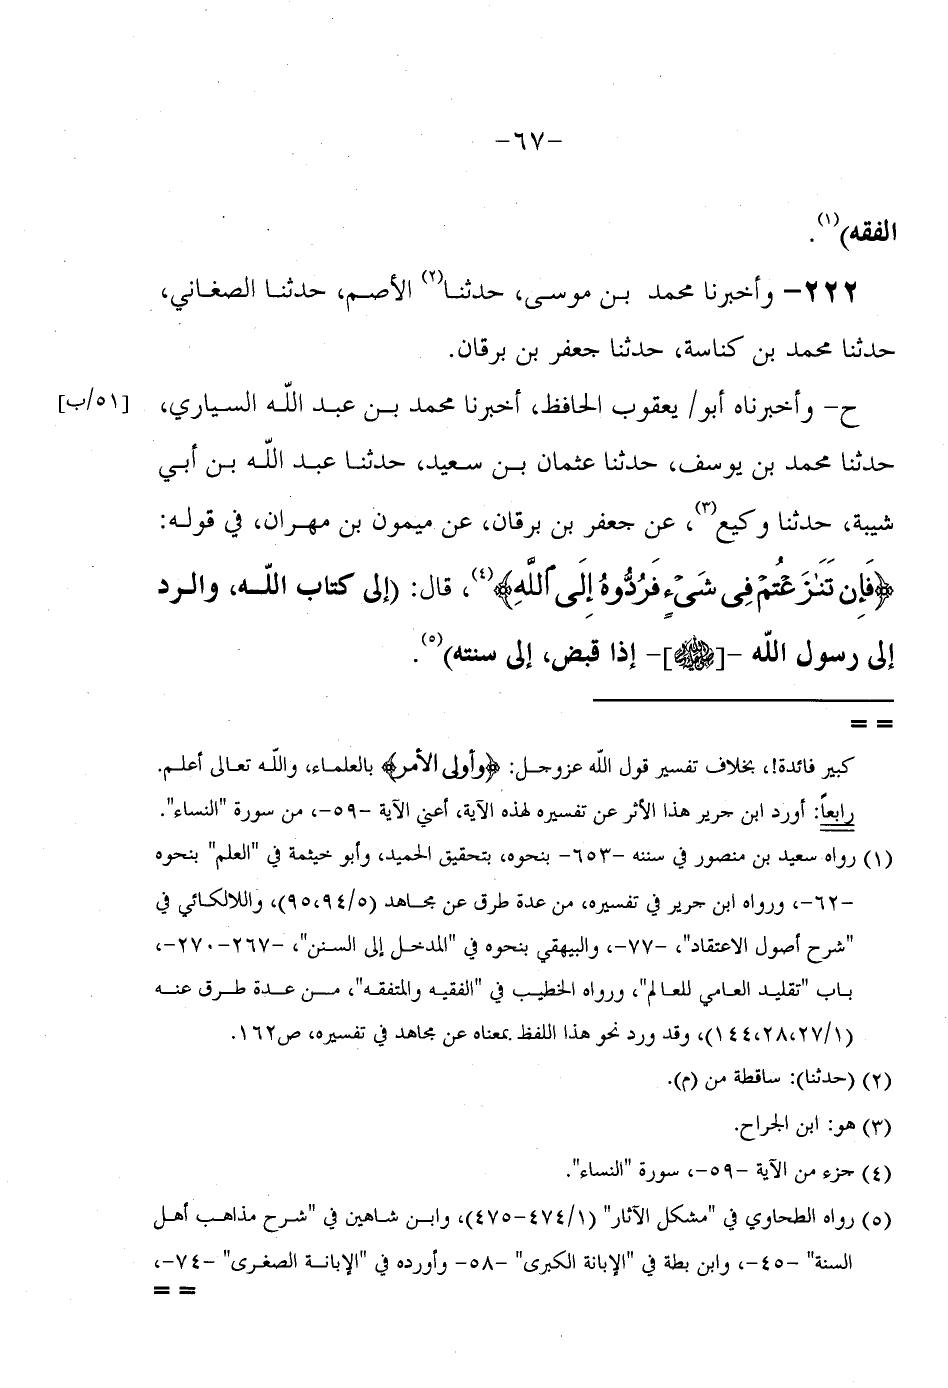 -٦٧-
الفقه)(١).
٢٢٢- وأخبرنا محمد بن موسى، حدثنا(٢) الأصم، حدثنا الصغاني،
حدثنا محمد بن كناسة، حدثنا جعفر بن برقان.
ح- وأخبرناه أبو/ يعقوب الحافظ، أخبرنا محمد بن عبد اللّه السياري، [٥١/ب]
حدثنا محمد بن يوسف، حدثنا عثمان بن سعيد، حدثنا عبد اللّه بن أبي
شيبة، حدثنا وكيع(٣)، عن جعفر بن برقان، عن ميمون بن مهران، في قوله:
﴿فَإِن تَنَٰزَعۡتُمۡ فِي شَيۡءٖ فَرُدُّوهُ إِلَى ٱللَّهِ﴾(٤)، قال: (إلى كتاب اللّه، والرد
إلى رسول اللّه -[ﷺ]- إذا قبض، إلى سنته)(٥).
= =
كبير فائدة!، بخلاف تفسير قول اللّه عزوجل: ﴿وأولى الأمر﴾ بالعلماء، واللّه تعالى أعلم.
رابعاً: أورد ابن جرير هذا الأثر عن تفسيره لهذه الآية، أعني الآية -٥٩-، من سورة "النساء".
(١) رواه سعيد بن منصور في سننه -٦٥٣- بنحوه، بتحقيق الحميد، وأبو خيثمة في "العلم" بنحوه
-٦٢-، ورواه ابن جرير في تفسيره، من عدة طرق عن مجاهد (٩٥،٩٤/٥)، واللالكائي في
"شرح أصول الاعتقاد"، -٧٧-، والبيهقي بنحوه في "المدخل إلى السنن"، -٢٦٧-٢٧٠-،
باب "تقليد العامي للعالم"، ورواه الخطيب في "الفقيه والمتفقه"، من عدة طرق عنه
(١٤٤،٢٨،٢٧/١)، وقد ورد نحو هذا اللفظ بمعناه عن مجاهد في تفسيره، ص١٦٢.
(٢) (حدثنا): ساقطة من (م).
(٣) هو: ابن الجراح.
(٤) جزء من الآية -٥٩-، سورة "النساء".
(٥) رواه الطحاوي في "مشكل الآثار" (٤٧٤/١-٤٧٥)، وابن شاهين في "شرح مذاهب أهل
السنة" -٤٥-، وابن بطة في "الإبانة الكبرى" -٥٨- وأورده في "الإبانة الصغرى" -٧٤-،
= =